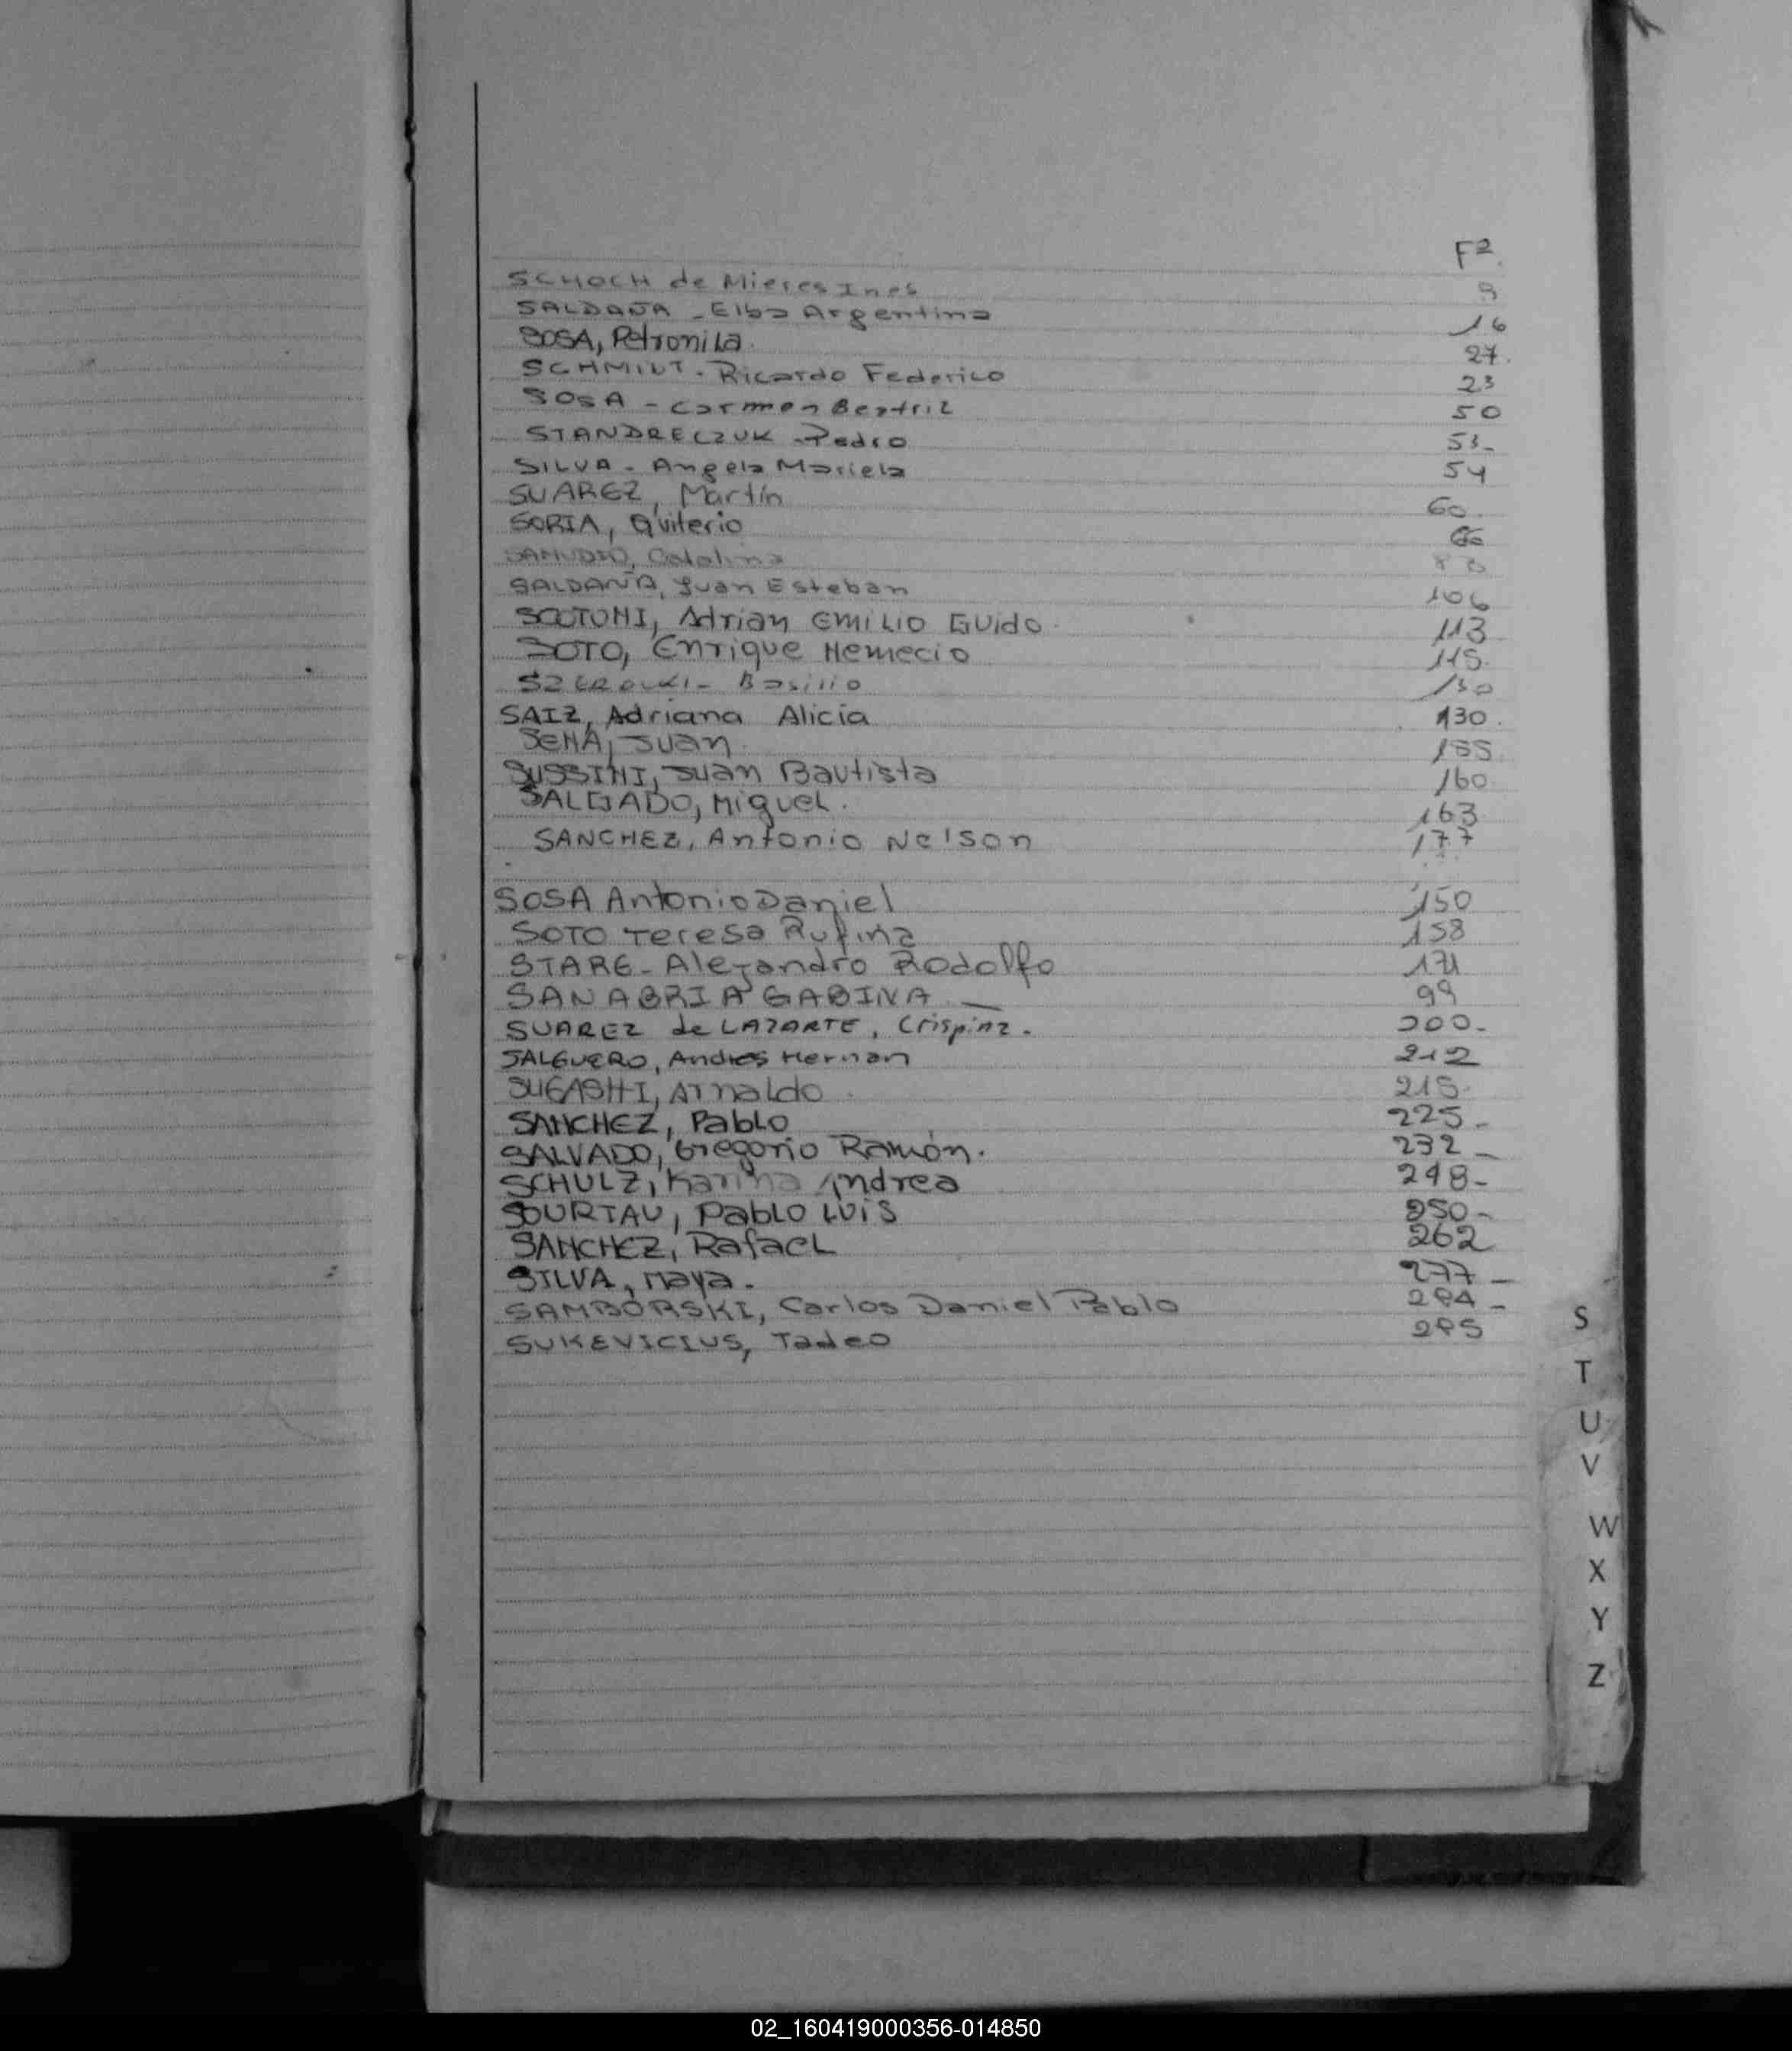 Fº
SCHOCH de Mieres Ines 9
SALDAÑA - Elba Argentina 16
SOSA, Petronila. 27.
SCHMIDT - Ricardo Federico 23
SOSA - Carmen Beatriz 50
STANDRECZUK - Pedro 53-
SILVA - Angela Mariela 54
SUAREZ, Martín 60.
SORIA, Quiterio
SAMUDIO, Catalina
SALDAÑA, Juan Esteban 106
SCOTONI, Adrian Emilio Guido. 113
SOTO, Enrique Nemecio 115.
Basilio
SAIZ, Adriana Alicia 130.
SENA, Juan 155.
SUSSINI, Juan Bautista 160
SALGADO, Miguel. 163
SANCHEZ, Antonio Nelson 177
SOSA Antonio Daniel 150
SOTO Teresa Rufina 158
STARE - Alejandro Rodolfo 171
SANABRIA GABINA. — 99
SUAREZ de LAZARTE, Crispina. 200-
SALGUERO, Andres Hernan 212
Arnaldo 215.
SANCHEZ, Pablo 225-
SALVADO, Gregorio Ramón. 232-
SCHULZ, Karina Andrea 248-
SOURTAU, Pablo Luis 250-
SANCHEZ, Rafael 262
SILVA, Maya. 277-
SAMBORSKI, Carlos Daniel Pablo 284-
SUKEVICIUS, Tadeo 285
S
T
U
V
W
X
Y
Z
02_160419000356-014850